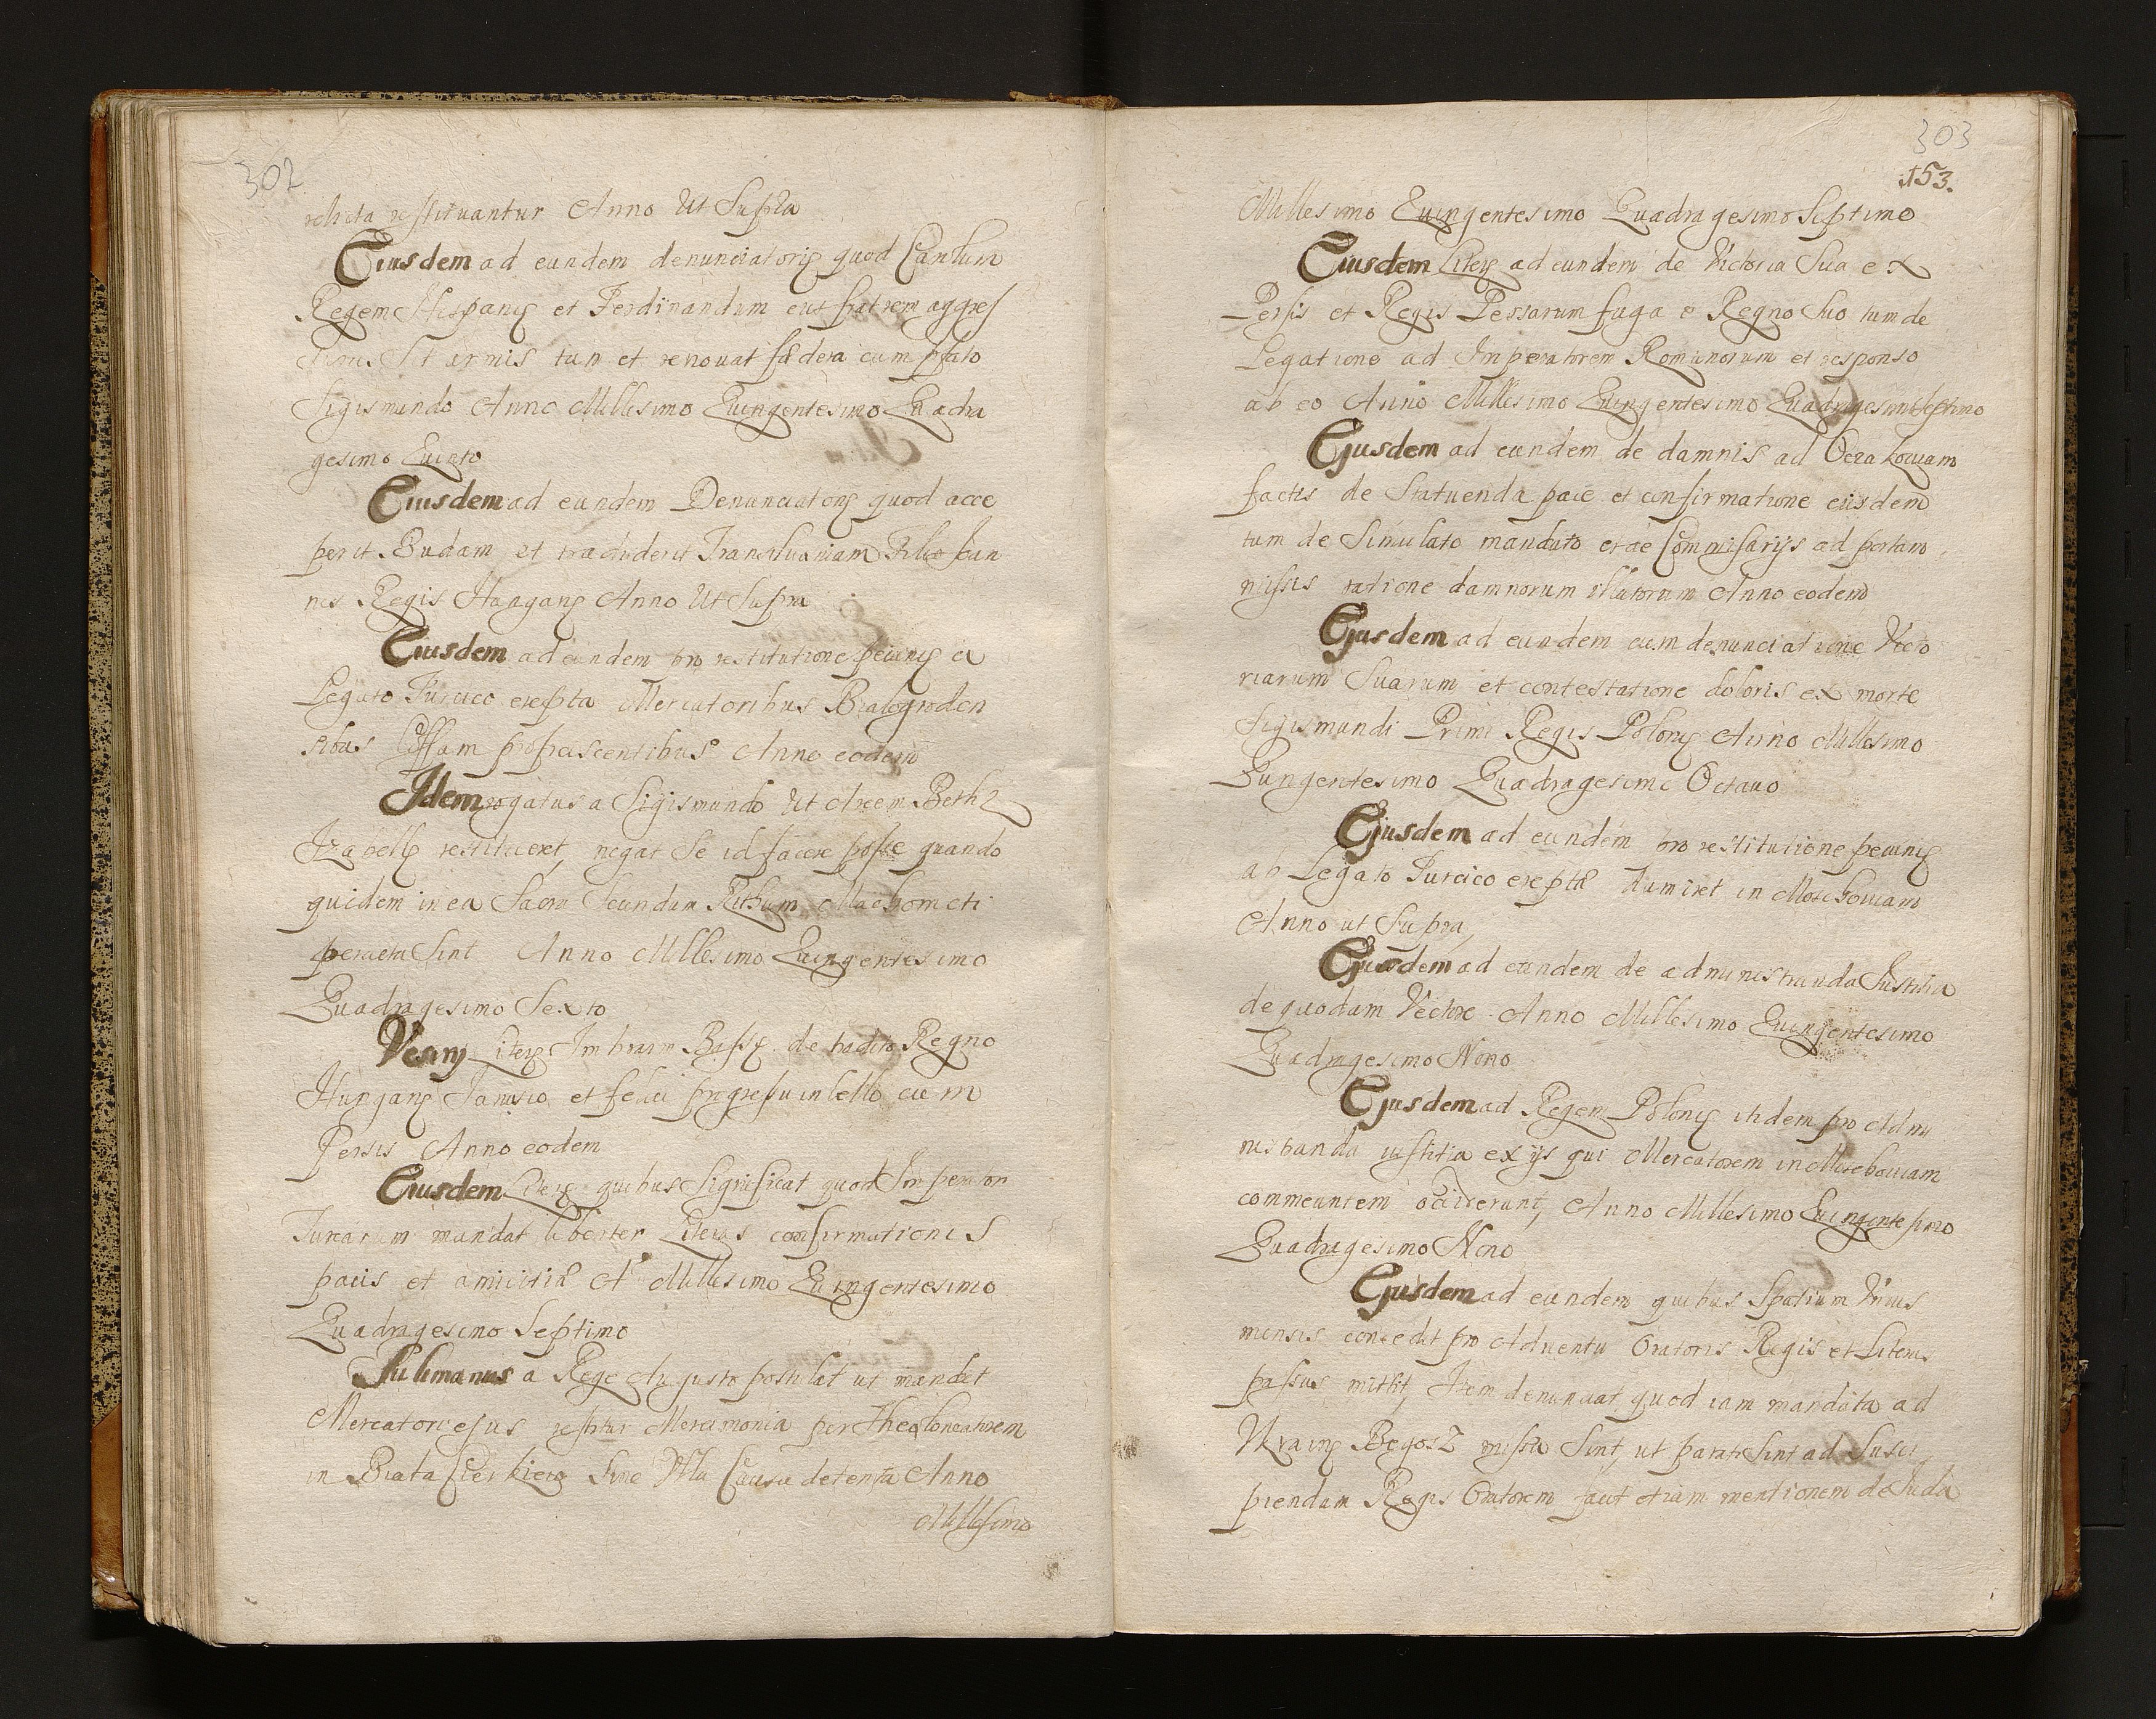 302
relicta restituantur Anno Ut Supra
Eiusdem ad eundem denunciatoriæ quod Carolum
Regem Hispaniæ et Ferdinandum eius fratrem aggres
surus sit armis tum et renouat fædera cum pfato
Sigismundo Anno Millesimo Quingentesimo Quadra
gesimo Quinto
Eiusdem ad eundem Denunciatoriæ quod acce
perit Budam et tradiderit Transiluaniam Filio Joan
nis Regis Hungariæ Anno Ut Supra
Eiusdem ad eundem pro restitutione pecuniæ ex
Legato Turcico erepta Mercatoribus Bialogroden
sibus Offam proposcentibus Anno eodem
Idem rogatus a Sigismundo Ut Arcem Beth2
Izabellæ restitueret, negat Se id facere posse quando
quidem in ea Sacra Secundum Rithum Machometi
peracta Sint Anno Millesimo Quingentesimo
Quadragesimo Sexto
Veniæ Literæ Imbraim Bassæ de tradito Regno
Hungariæ et felici progressu in bello cum
Persis Anno eodem
Eiusdem Literæ quibus Significat quod Imperator
Turcarum mandat libenter Literas confirmationis
pacis et amicitiæ Ao Millesimo Quingentesimo
Quadragesimo Septimo
Sulimanus a Rege Augusto postulat ut mandet
Mercatori ejus restitui Mercimonia per Theoloneatorem
in Biata Cierkiew Sine Ulla Causa detenta Anno
Millesimo
303
153.
Millesimo Quingentesimo Quadragesimo Septimo
Eiusdem Literæ ad eundem de Victoria Sua ex
Persis et Regis Persarum fuga e Regno Suo tum de
Legatione ad Imperatorem Romanorum et responso
ab eo Anno Millesimo Quingentesimo Quadragesimo Septimo
Ejusdem ad eundem de damnis ad Oczakowiam
factis de Statuenda pace et confirmatione eiusdem
tum de Simulato mandato et de Commissarijs ad portam
missis ratione damnorum illatorum Anno eodem
Ejusdem ad eundem cum denunciatione Victo
riarum Suarum et contestatione doloris ex morte
Sigismundi Primi Regis Poloniæ Anno Millesimo
Quingentesimo Quadragesimo Octauo
Ejusdem ad eundem pro restitutione pecuniæ
ab Legato Turcico ereptæ dum iret in Moschouiam
Anno ut Supra
Ejusdem ad eundem de administranda Justitia
de quodam Vectore Anno Millesimo Quingentesimo
Quadragesimo Nono
Ejusdem ad Regem Poloniæ itidem pro Admi
nistranda iustitia ex ijs qui Mercatorem in Moschouiam
commeuntem occiderunt, Anno Millesimo Quingentesimo
Quadragesimo Nono
Ejusdem ad eundem quibus Spatium Unius
mensis concedit pro Aduentu Oratoris Regis et Literas
passus mittit, Item denunciat quod iam mandata ad
Ukrainæ Begos2 missa Sint, ut parati Sint ad Susci
piendum Regis Oratorem facit etiam mentionem de Juda